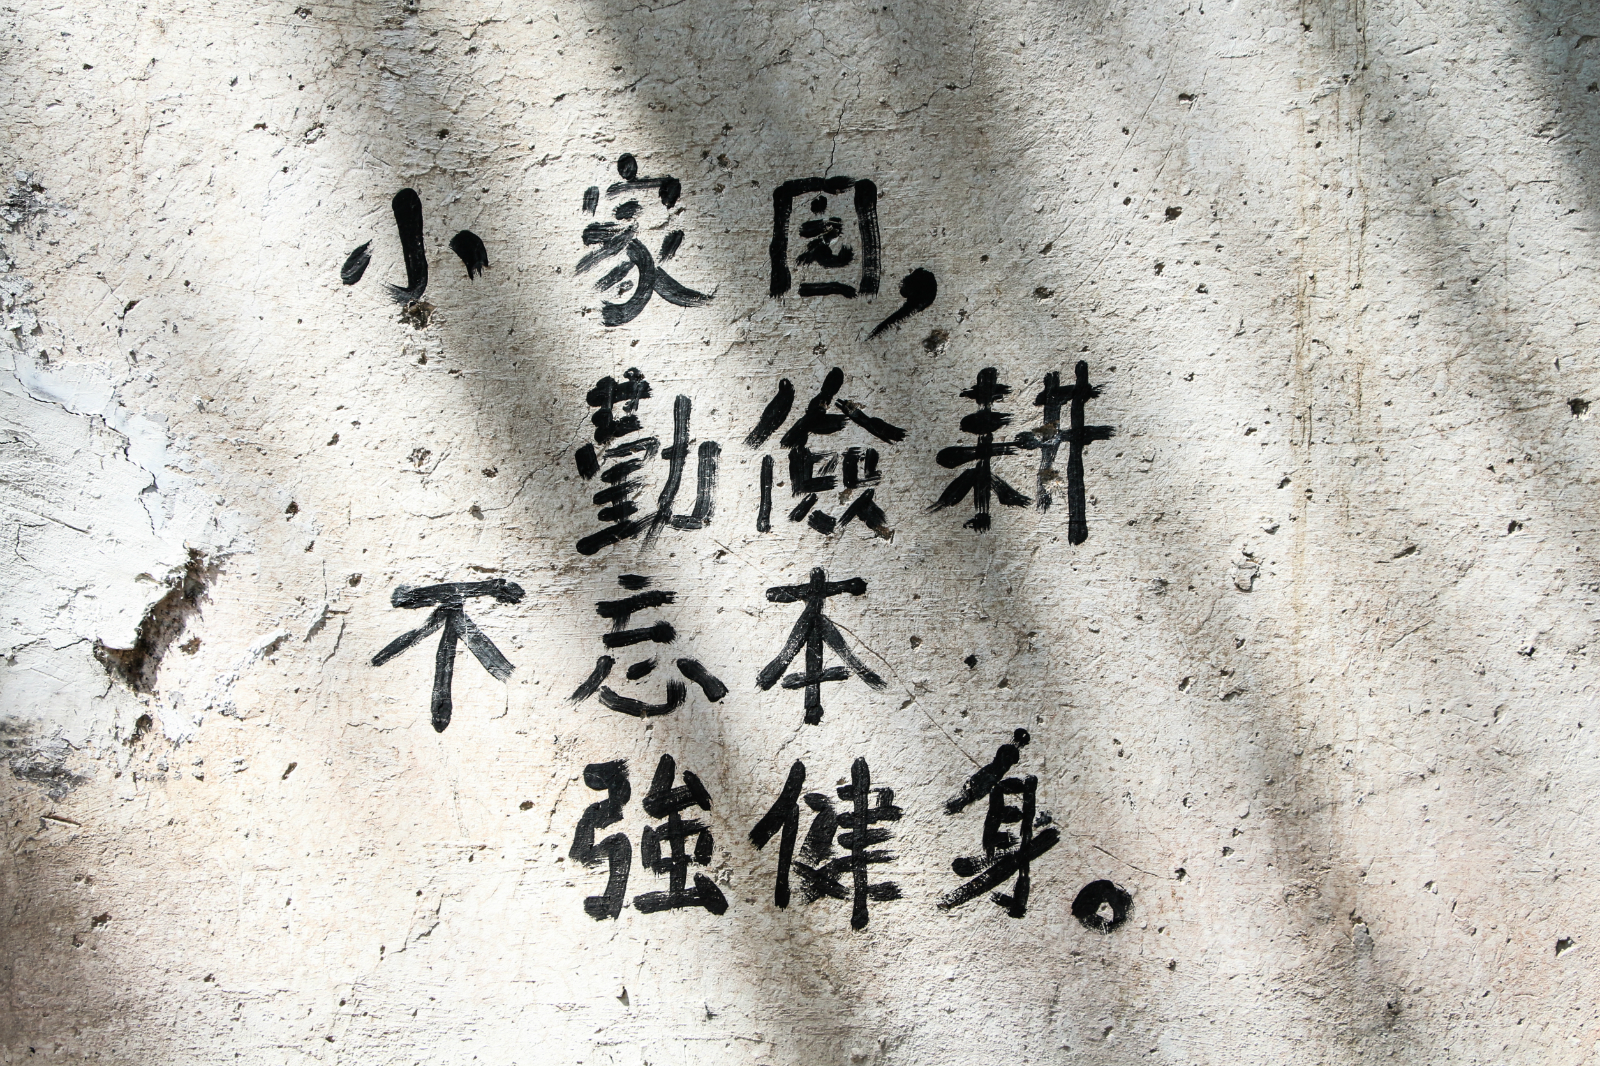 小家園，
勤儉耕
不忘本
強健身。